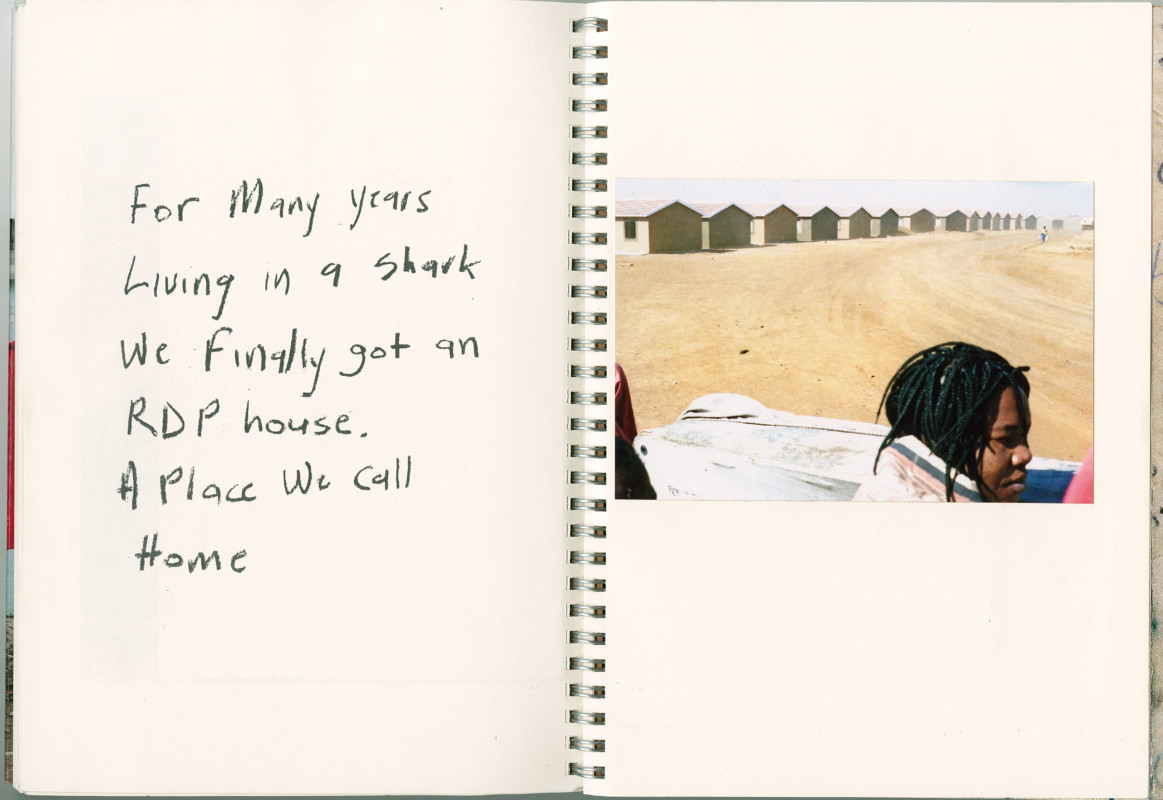 For Many years
Living in a shark
We Finally got an
RDP house.
A Place We Call
Home